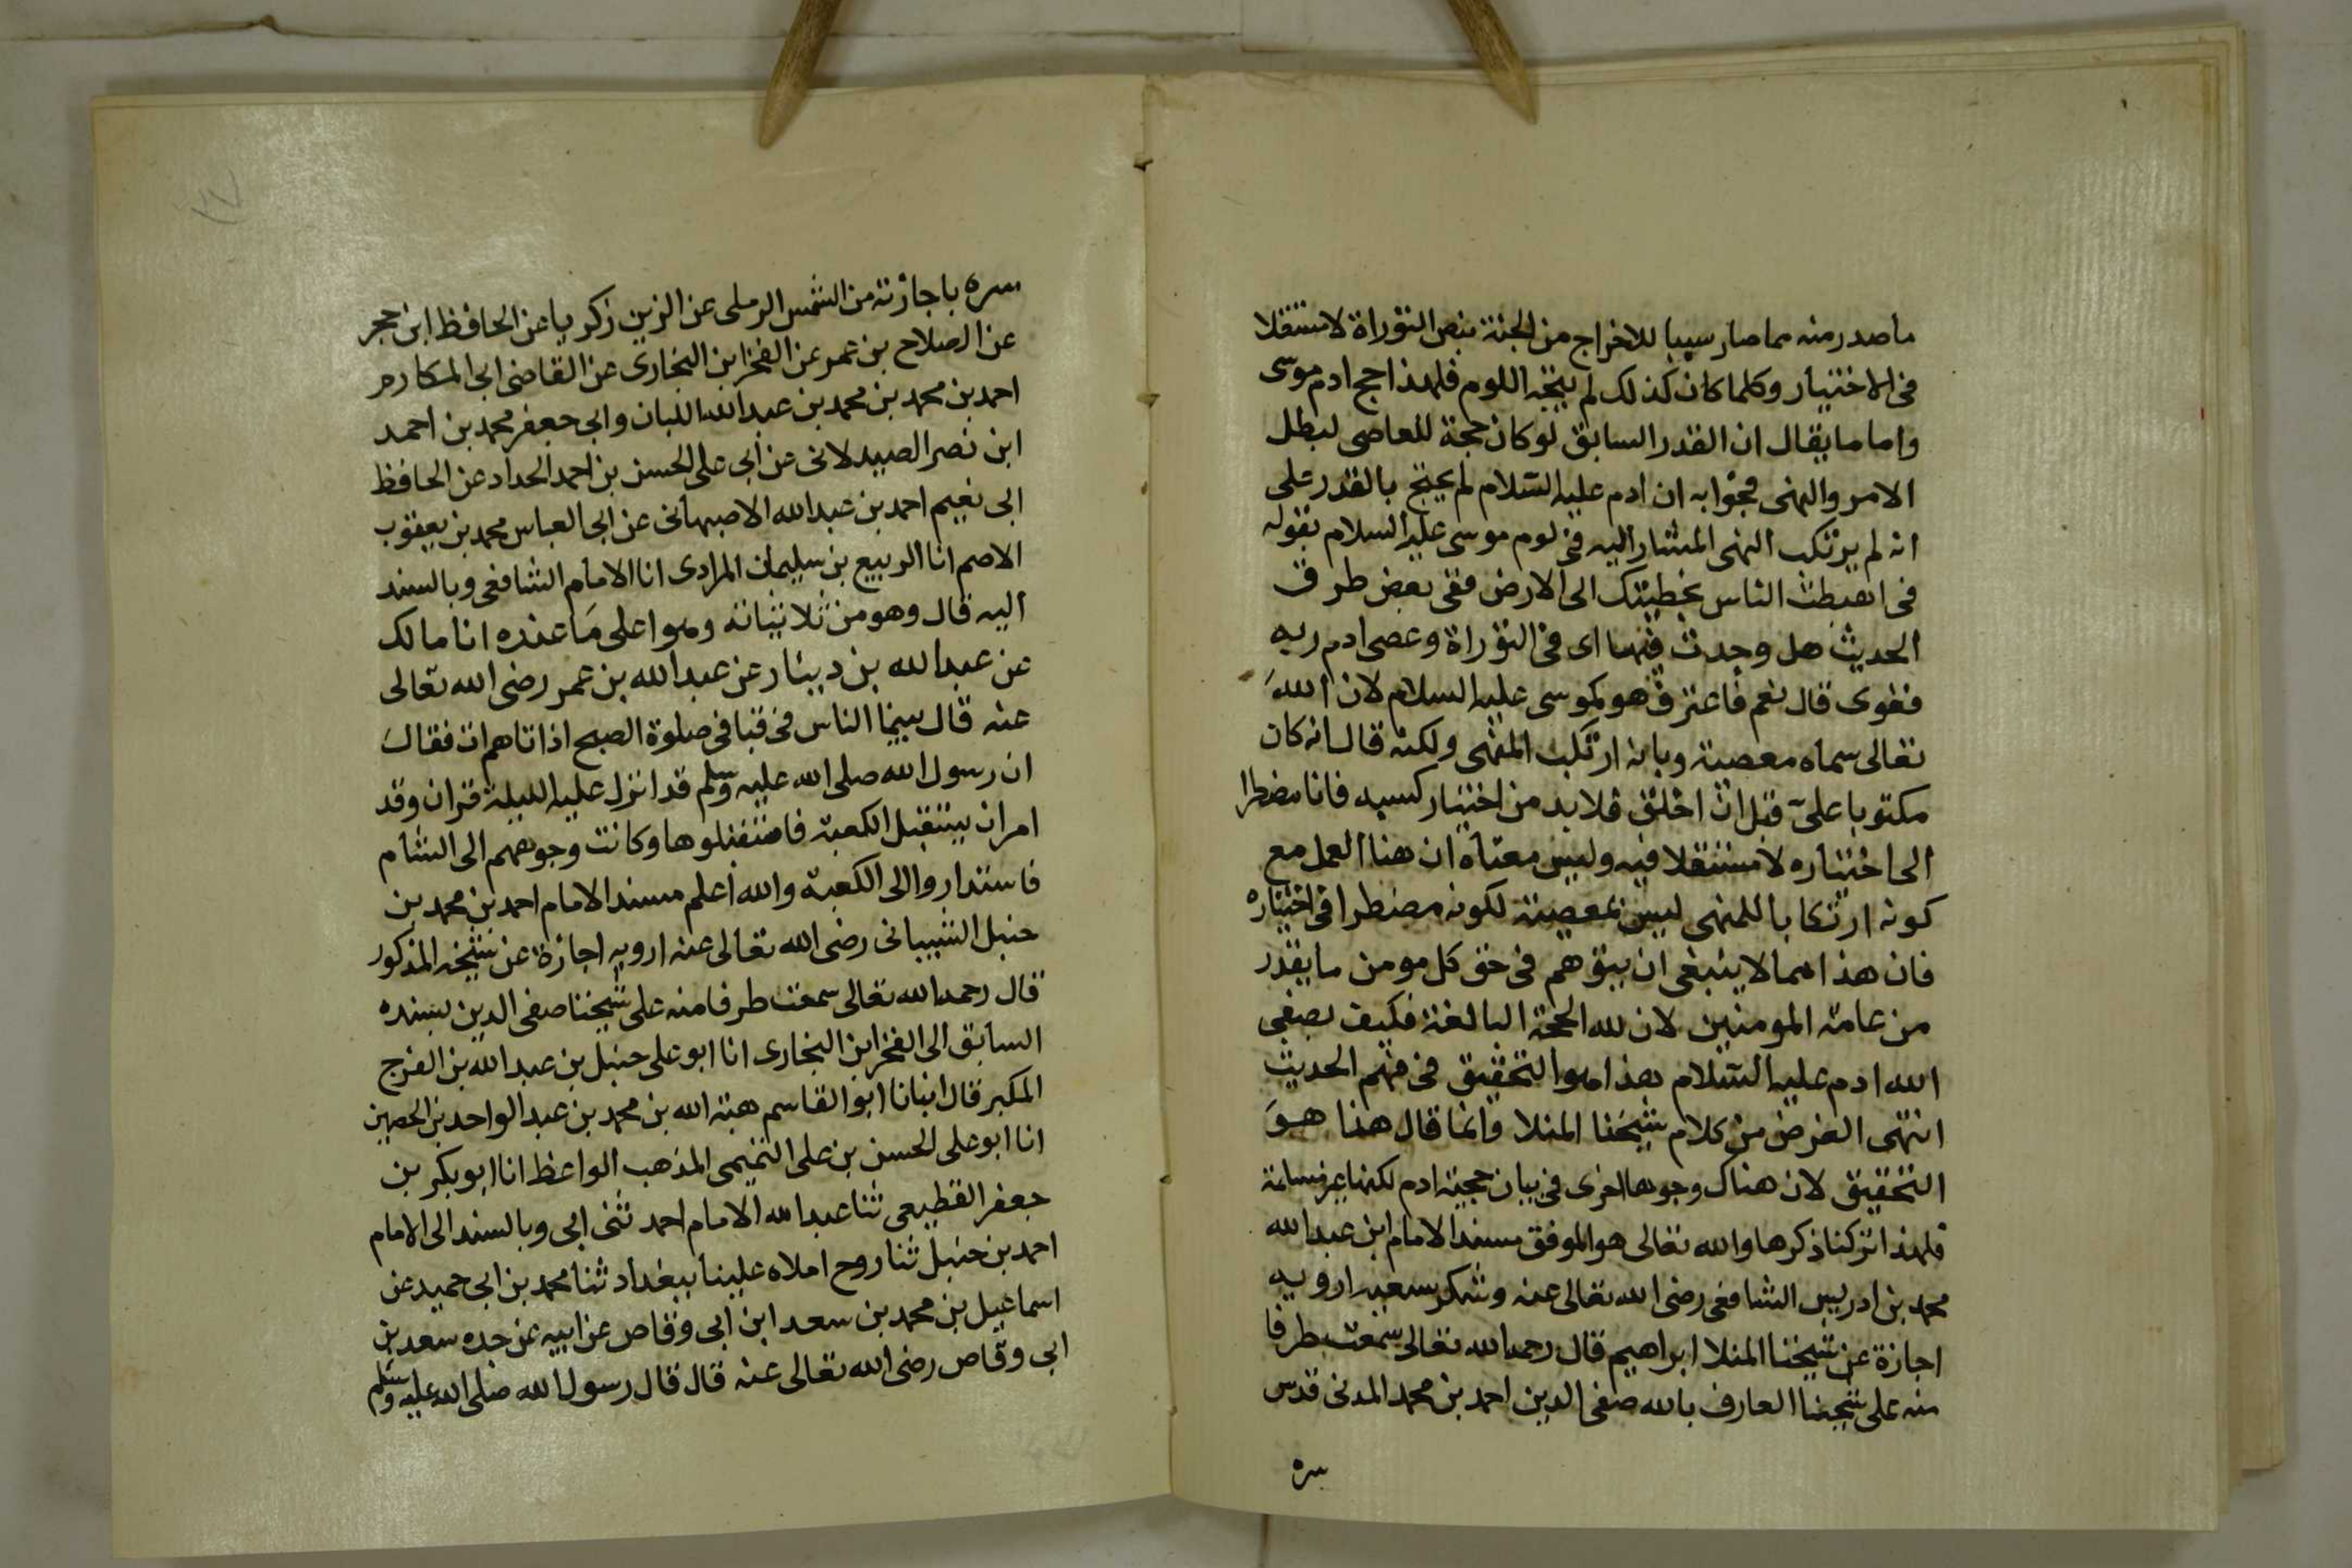 ما صدر منه مما صار سببا للاخراج من الجنة بنص التوراة لا مستقلا
فى الاختيار وكلما كان كذلك لم يتجه اللوم فلهذا حج ادم موسى
واما ما يقال ان القدر السابق لو كان حجة للعاصى لبطل
الامر والنهى فجوابه ان ادم عليه السلام لم يحتج بالقدر على
انه لم يرتكب النهى المشار اليه فى لوم موسى عليه السلام بقوله
فى اهبطت الناس بخطيئتك الى الارض ففى بعض طرق
الحديث هل وجدت فيها اى فى التوراة وعصى ادم ربه
فغوى قال نعم فاعترف هو كموسى عليه السلام لان الله
تعالى سماه معصية وبانه ارتكب المنهى ولكنه قال انه كان
مكتوبا على قبل ان اخلق فلا بد من اختيار كسبه فانا مضطر
الى اختياره لا مستقلا فيه وليس معناه ان هذا العمل مع
كونه ارتكابا للمنهى ليس بمعصية لكونه مضطرا فى اختياره
فان هذا مما لا ينبغى ان يتوهم فى حق كل مومن ما يقدر
من عامة المومنين لان لله الحجة البالغة فكيف بصفى
الله ادم عليه السلام هذا هو التحقيق فى فهم الحديث
انتهى الغرض من كلام شيخنا المنلا وانما قال هذا هو
التحقيق لان هناك وجوها اخرى فى بيان حجية ادم لكنها غير سالمة
فلهذا تركنا ذكرها والله تعالى هو الموفق مسند الامام ابن عبد الله
محمد بن ادريس الشافعى رضى الله تعالى عنه وشكر سعيه ارويه
اجازة عن شيخنا المنلا ابراهيم قال رحمه الله تعالى سمعت طرفا
منه على شيخنا العارف بالله صفى الدين احمد بن محمد المدنى قدس
سره
٣٧
سره باجازته من الشمس الرملى عن الزين زكريا عن الحافظ ابن حجر
عن الصلاح بن عمر عن الفخر ابن البخارى عن القاضى ابى المكارم
احمد بن محمد بن محمد بن عبد الله اللبان وابى جعفر محمد بن احمد
ابن نصر الصيدلانى عن ابى على الحسن بن احمد الحداد عن الحافظ
ابى نعيم احمد بن عبد الله الاصبهانى عن ابى العباس محمد بن يعقوب
الاصم انا الربيع بن سليمان المرادى انا الامام الشافعى وبالسند
اليه قال وهو من ثلاثياته وهو اعلى ما عنده انا مالك
عن عبد الله بن دينار عن عبد الله بن عمر رضى الله تعالى
عنه قال بينما الناس فى قبا فى صلوة الصبح اذ اتاهم ات فقال
ان رسول الله صلى الله عليه وسلم قد انزل عليه الليلة قران وقد
امر ان يستقبل الكعبة فاستقبلوها وكانت وجوههم الى الشام
فاستداروا الى الكعبة والله اعلم مسند الامام احمد بن محمد بن
حنبل الشيبانى رضى الله تعالى عنه ارويه اجازة عن شيخنا المذكور
قال رحمه الله تعالى سمعت طرفا منه على شيخنا صفى الدين بسنده
السابق الى الفخر ابن البخارى انا ابو على حنبل بن عبد الله بن الفرج
المكبر قال انبانا ابو القاسم هبة الله بن محمد بن عبد الواحد بن الحصين
انا ابو على الحسن بن على التميمى المذهب الواعظ انا ابو بكر بن
جعفر القطيعى ثنا عبد الله الامام احمد ثنى ابى وبالسند الى الامام
احمد بن حنبل ثنا روح املاه علينا ببغداد ثنا محمد بن ابى حميد عن
اسماعيل بن محمد بن سعد ابن ابى وقاص عن ابيه عن جده سعد بن
ابى وقاص رضى الله تعالى عنه قال قال رسول الله صلى الله عليه وسلم